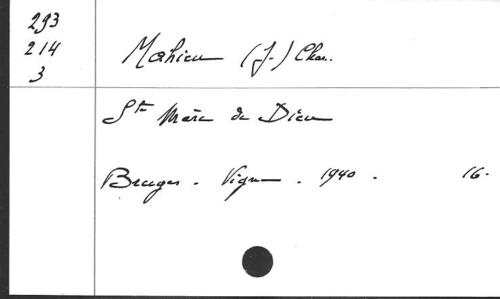 293
214
3
Mahieu (J.) Chan.
Ste Mère de Dieu
Bruges. Vigne. 1940. 16.